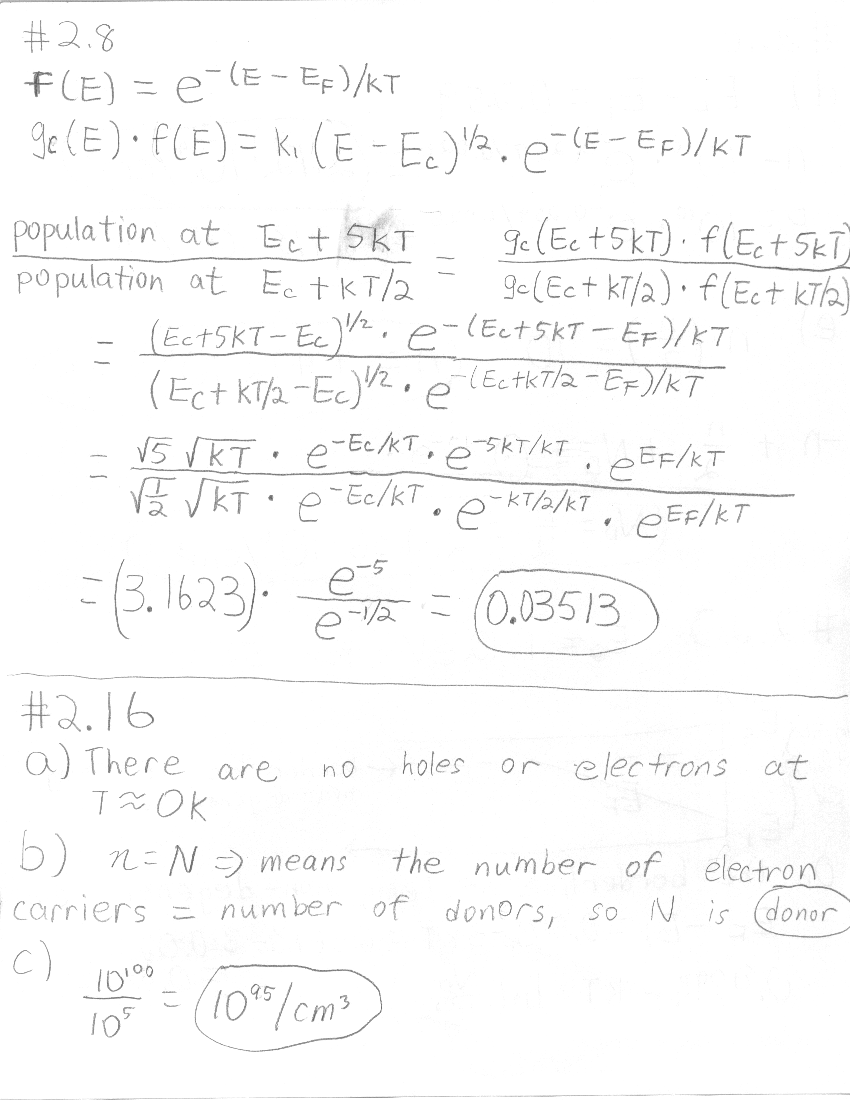 #2.8
f(E) = e^-(E - E_F)/kT
g_c(E) · f(E) = k_1 (E - E_c)^1/2 · e^-(E - E_F)/kT
population at E_c + 5kT / population at E_c + kT/2 = g_c(E_c + 5kT) · f(E_c + 5kT) / g_c(E_c + kT/2) · f(E_c + kT/2)
= (E_c + 5kT - E_c)^1/2 · e^-(E_c + 5kT - E_F)/kT / (E_c + kT/2 - E_c)^1/2 · e^-(E_c + kT/2 - E_F)/kT
= √5 √kT · e^-E_c/kT · e^-5kT/kT · e^E_F/kT / √(1/2) √kT · e^-E_c/kT · e^-kT/2/kT · e^E_F/kT
= (3.1623) · e^-5 / e^-1/2 = 0.03513
#2.16
a) There are no holes or electrons at
T ≈ 0K
b) n = N ⇒ means the number of electron
carriers = number of donors, so N is donor
c) 10^100 / 10^5 = 10^95/cm^3